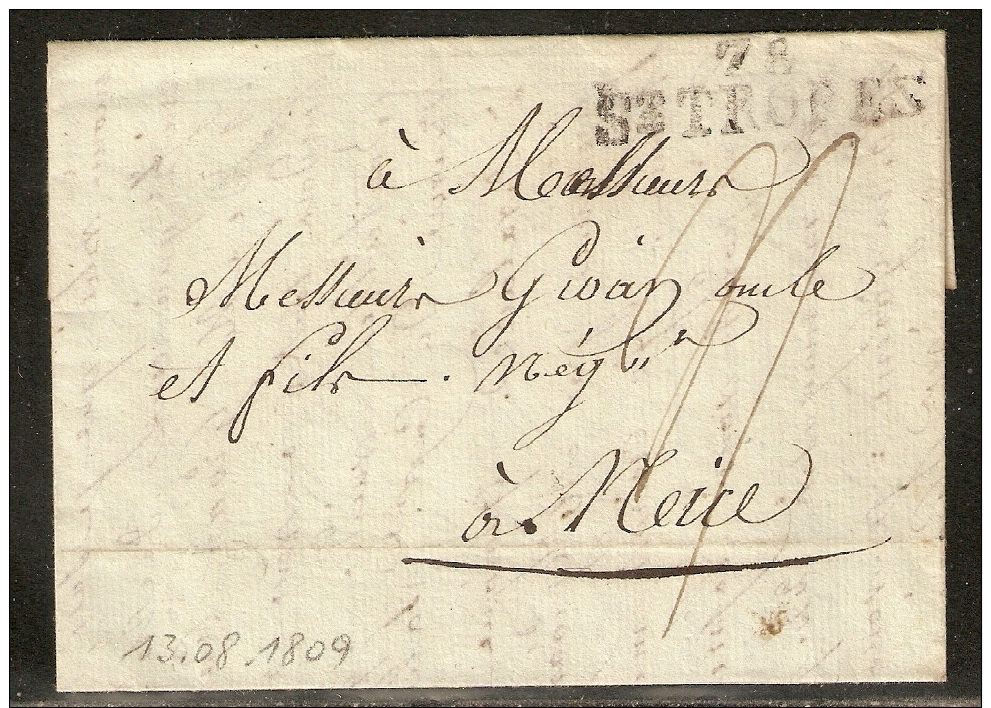 78
STTROPES
à Messieurs
Messieurs oncle
et fils. nég.n
à Neice
13.08.1809